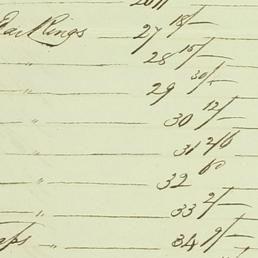 Ear Rings 27 18/-
" 28 15/-
" 29 30/-
" 30 12/-
" 31 2/6
" 32
" 33 2/-
34 9/-